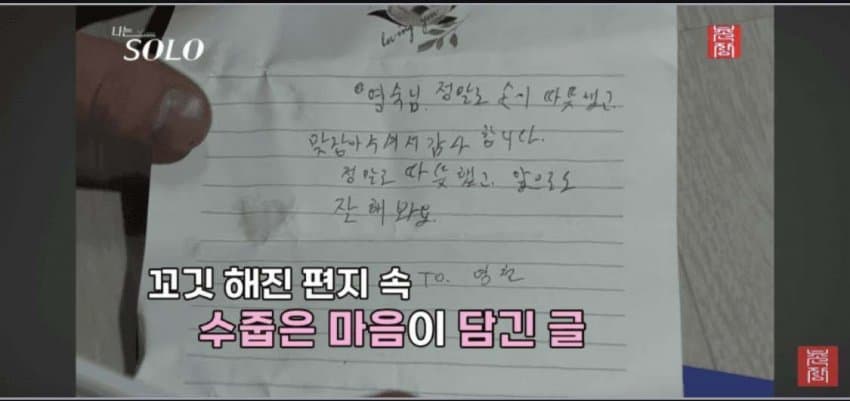 나는
SOLO
loving you
영숙님. 정말로 손이 따뜻했고.
맞잡아주셔서 감사 합니다.
정말로 따뜻했고. 앞으로도
잘 해 봐요.
TO. 영철
꼬깃 해진 편지 속
수줍은 마음이 담긴 글